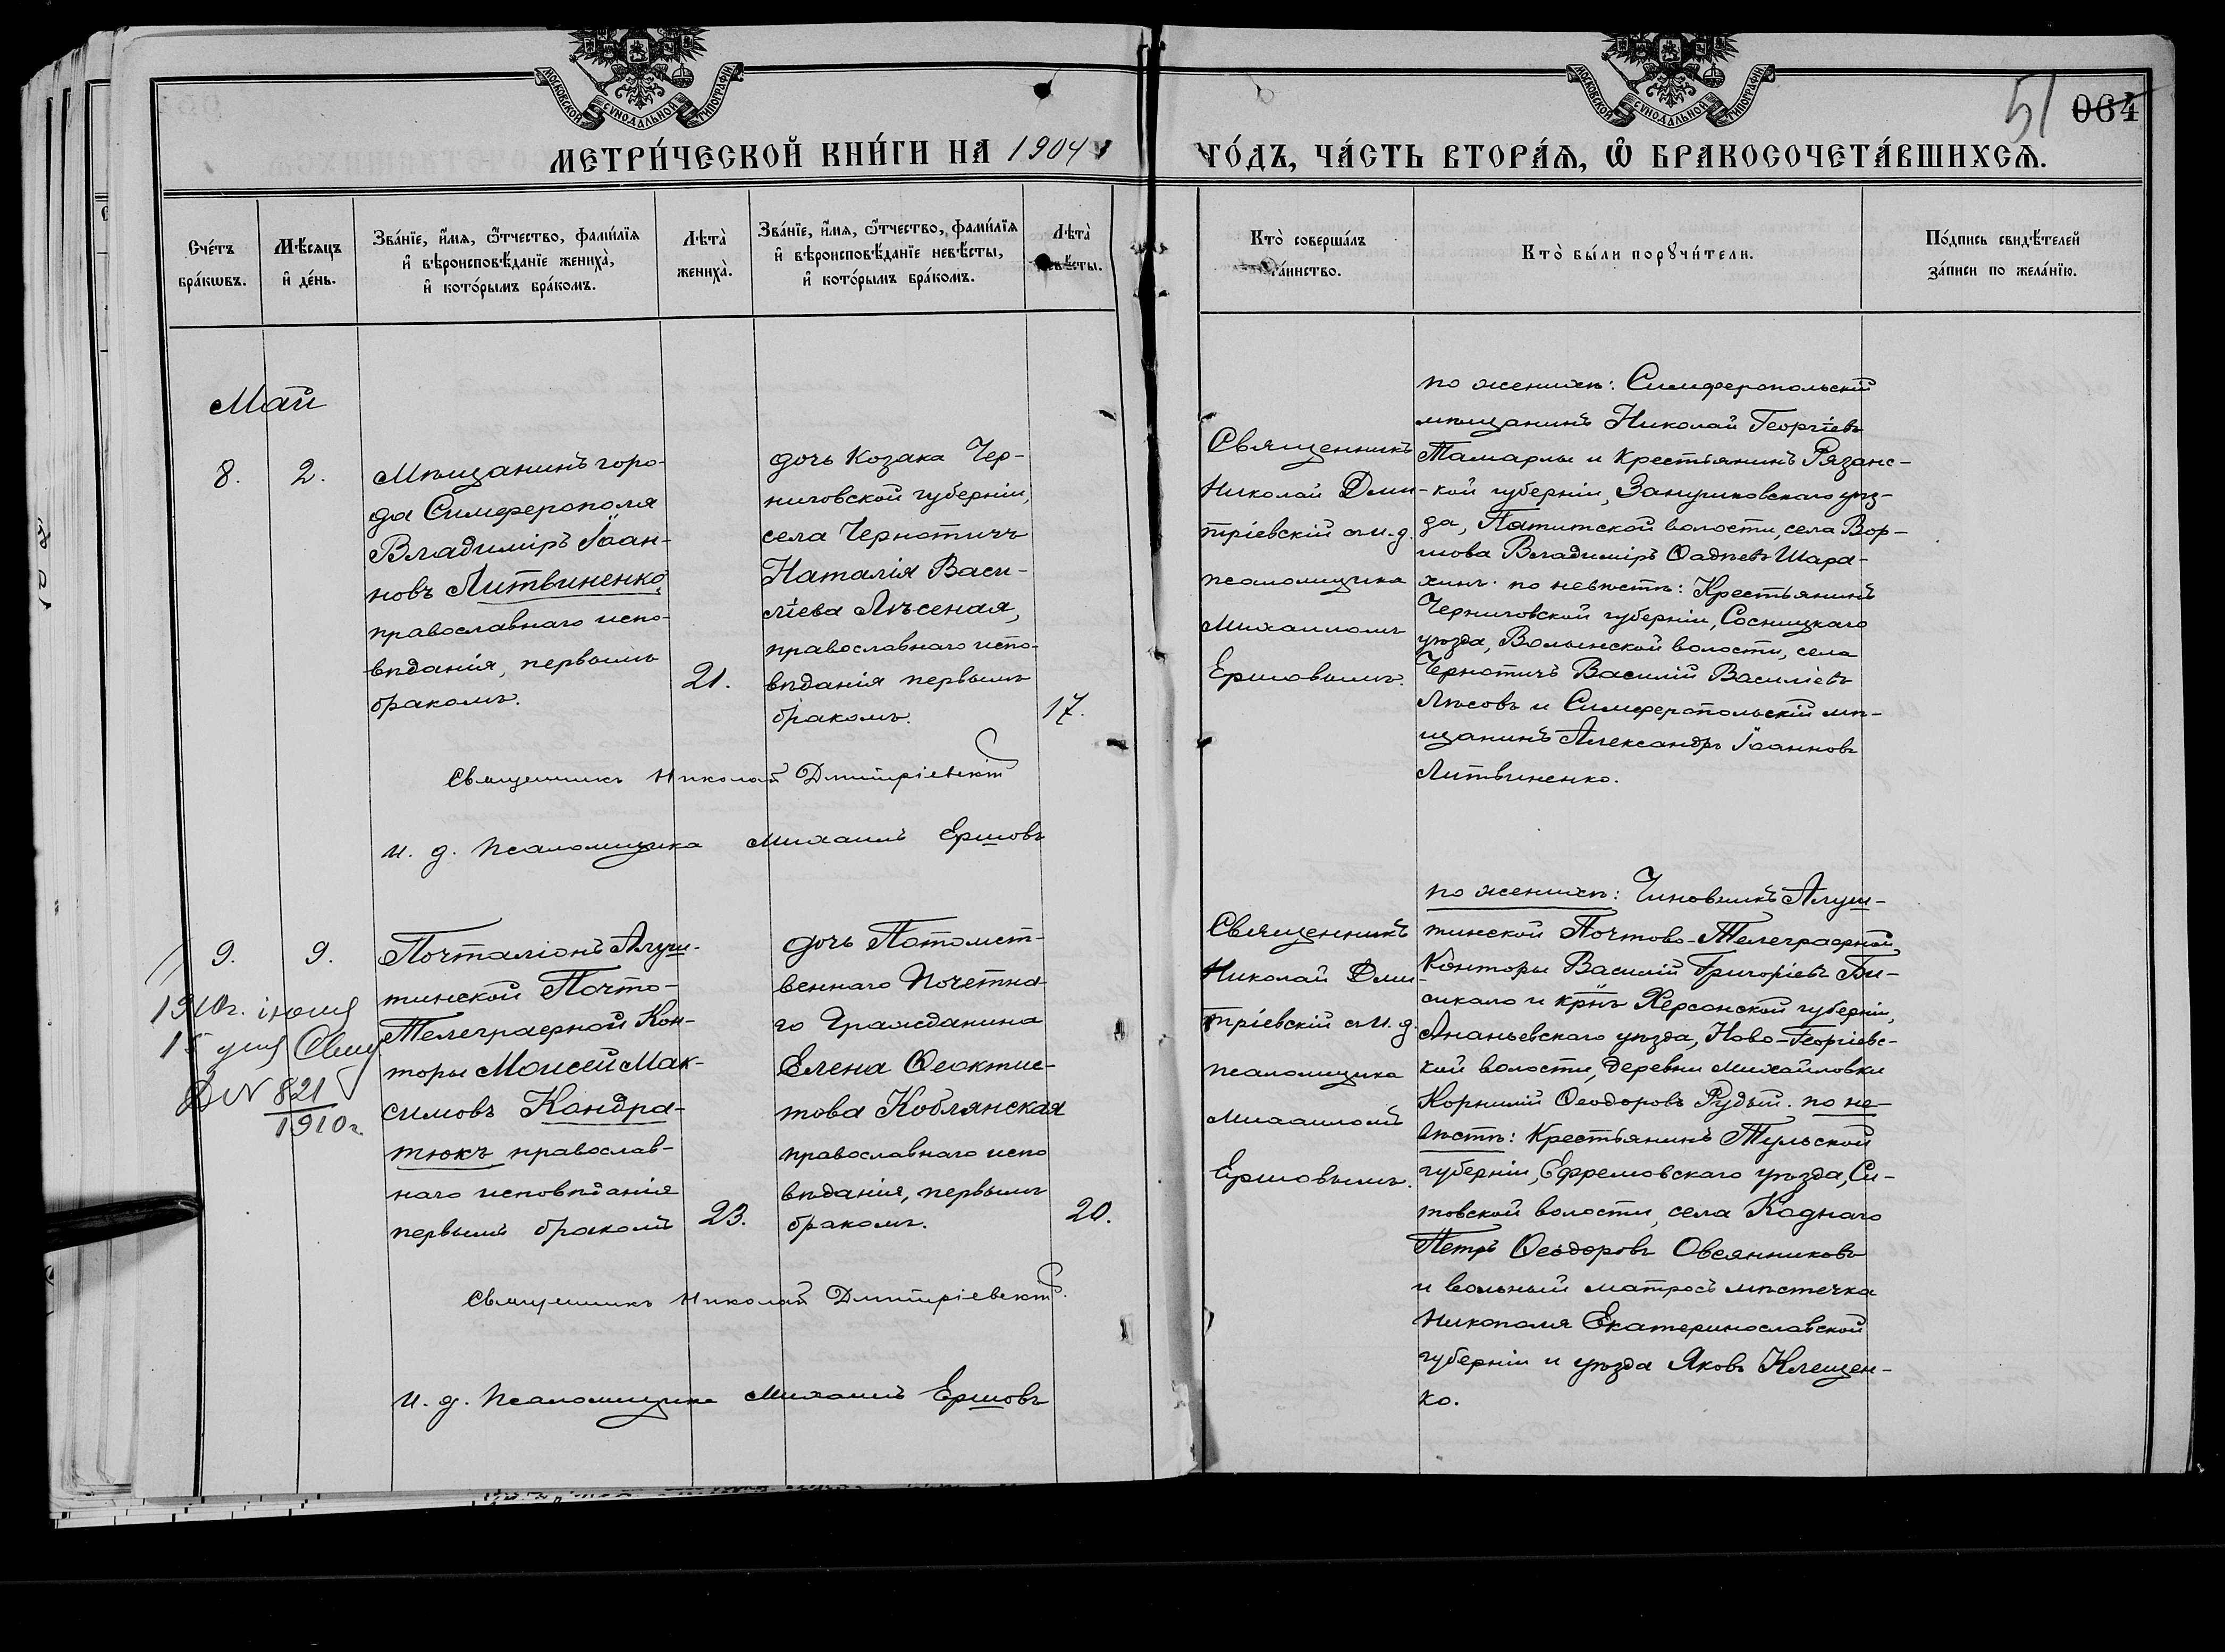 МОСКОВСКОЙ СѴНОДАЛЬНОЙ ТИПОГРАФІИ
МОСКОВСКОЙ СѴНОДАЛЬНОЙ ТИПОГРАФІИ
51 064
МЕТРИ́ЧЕСКОЙ КНИ́ГИ НА 1904
ГО́ДЪ, ЧА́СТЬ ВТОРА́Ѧ, Ѽ БРАКОСОЧЕТА́ВШИХСѦ.
Сче́тъ
бра́кѡвъ.
Мѣ́сѧцъ
и҆ де́нь.
Зва́нїе, и҆́мѧ, ѻ҆́тчество, фами́лїѧ
и҆ вѣроисповѣ́данїе жениха̀,
и҆ кото́рымъ бра́комъ.
Лѣта̀
жениха̀.
Зва́нїе, и҆́мѧ, ѻ҆́тчество, фами́лїѧ
и҆ вѣроисповѣ́данїе невѣ́сты,
и҆ кото́рымъ бра́комъ.
Лѣта̀
невѣ́сты.
Кто̀ соверша́лъ
та́инство.
Кто̀ бы́ли порꙋчи́тели.
По́дпись свидѣ́телей
за́писи по жела́нїю.
Май
8.
2.
Мѣщанинъ горо-
да Симферополя
Владиміръ Іоан-
новъ Литвиненко,
православнаго испо-
вѣданія, первымъ
бракомъ.
21.
дочь Козака Чер-
ниговской губерніи,
села Чернотичъ
Наталія Васи-
ліева Лѣсеная,
православнаго испо-
вѣданія первымъ
бракомъ.
17.
Священникъ
Николай Дми-
тріевскій съ и. д.
псаломщика
Михаиломъ
Ершовымъ.
по женихѣ: Симферопольскій
мѣщанинъ Николай Георгіевъ
Тамарлы и Крестьянинъ Рязанс-
кой губерніи, уѣз-
да, волости, села Вор-
шова Владиміръ Шара-
хинъ. по невѣстѣ: Крестьянинъ
Черниговской губерніи, Сосницкаго
уѣзда, Волынской волости, села
Чернотичъ Василій Василіевъ
Лѣсовъ и Симферопольскій мѣ-
щанинъ Александръ Іоанновъ
Литвиненко.
Священникъ Николай Дмитріевскій
И. д. Псаломщика Михаилъ Ершовъ
9.
9.
1910г. іюня
15 дня
№ 821
1910г.
Почталіонъ Алуш-
тинской Почто-
Телеграфной Кон-
торы Моисей Мак-
симовъ Кондра-
тюкъ православ-
наго исповѣданія
первымъ бракомъ
23.
дочь Потомст-
веннаго Почетна-
го Гражданина
Елена Ѳеоктис-
това Коблянская
православнаго испо
вѣданія, первымъ
бракомъ.
20.
Священникъ
Николай Дми-
тріевскій съ и. д.
псаломщика
Михаиломъ
Ершовымъ.
по женихѣ: Чиновникъ Алуш-
тинской Почтово-Телеграфной
Конторы Василій Григоріевъ Би-
сикало и крнъ Херсонской губерніи,
Ананьевскаго уѣзда, Ново-Георгіевс-
кой волости, деревни Михайловки
Корнилій Ѳеодоровъ Рудый. по не-
вѣстѣ: Крестьянинъ Тульской
губерніи, Ефремовскаго уѣзда, Си-
товской волости, села Кадного
Петръ Ѳеодоровъ Овсянниковъ
и вольный матросъ мѣстечка
Никополя Екатеринославской
губерніи и уѣзда Яковъ Клещен-
ко.
Священникъ Николай Дмитріевскій.
И. д. Псаломщика Михаилъ Ершовъ